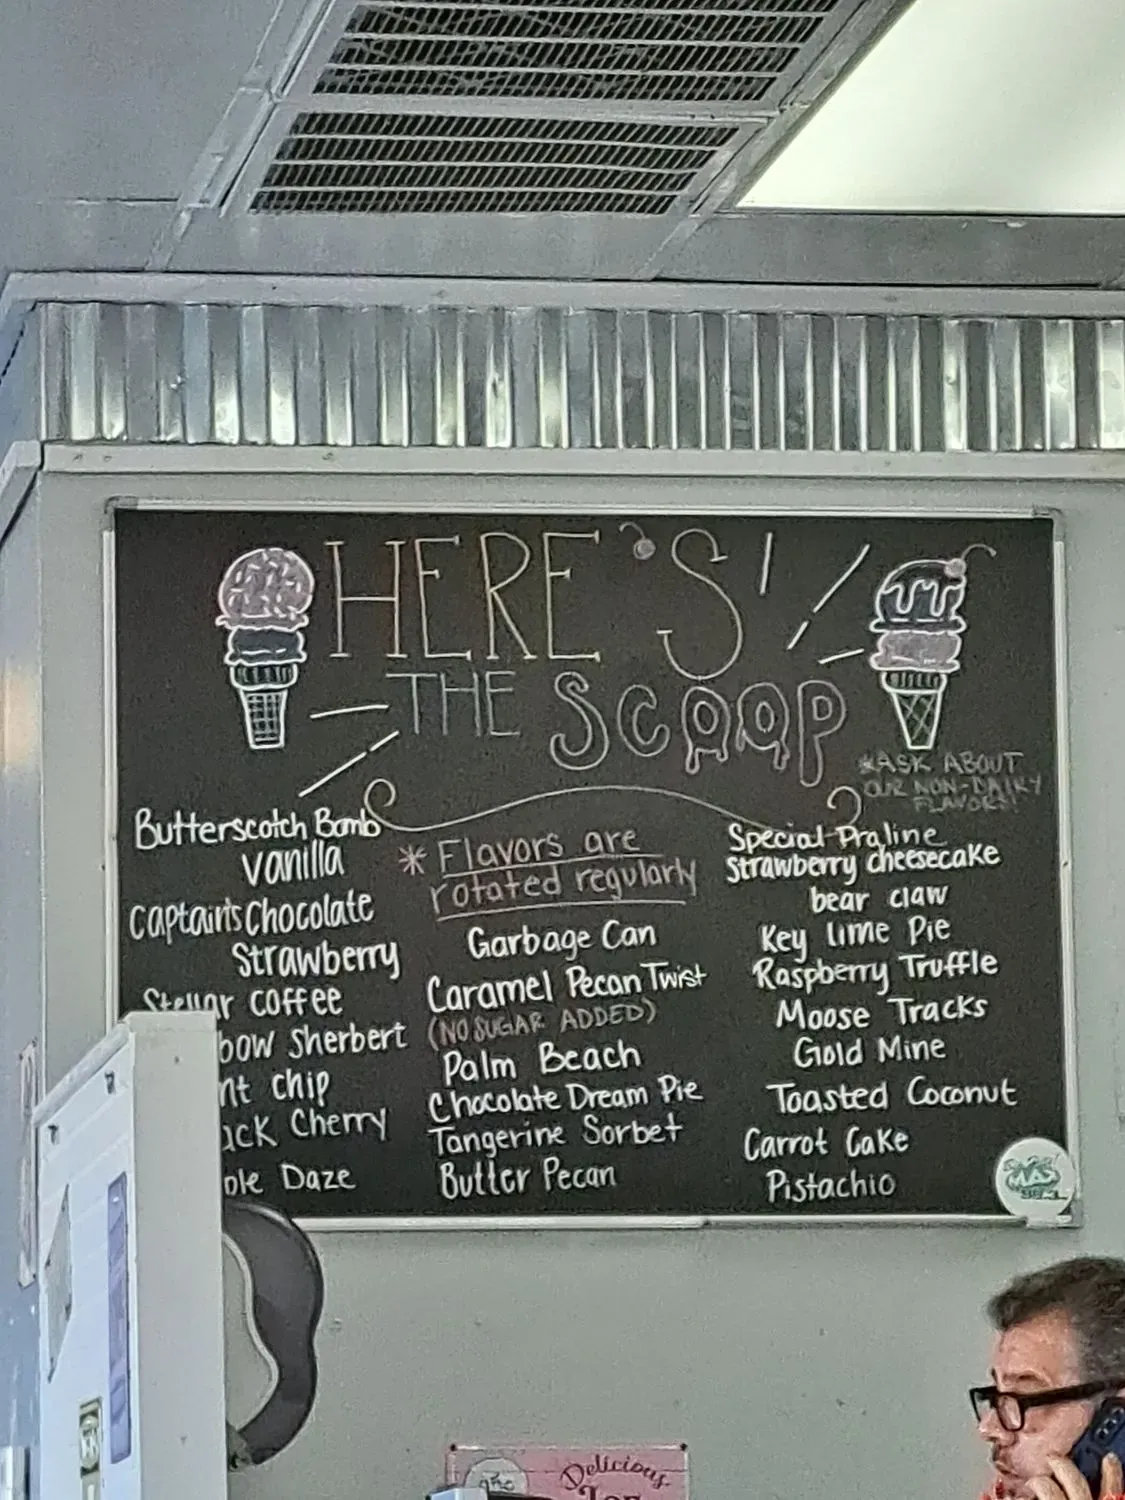 HERE'S
THE SCOOP
*ASK ABOUT
OUR NON-DAIRY
FLAVORS!
Butterscotch Bomb
Vanilla
Captain's Chocolate
Strawberry
Stellar coffee
bow Sherbert
nt chip
ack Cherry
ple Daze
* Flavors are
rotated regularly
Garbage Can
Caramel Pecan Twist
(NO SUGAR ADDED)
Palm Beach
Chocolate Dream Pie
Tangerine Sorbet
Butter Pecan
Special Praline
Strawberry cheesecake
bear claw
Key lime Pie
Raspberry Truffle
Moose Tracks
Gold Mine
Toasted Coconut
Carrot Cake
Pistachio
Delicious